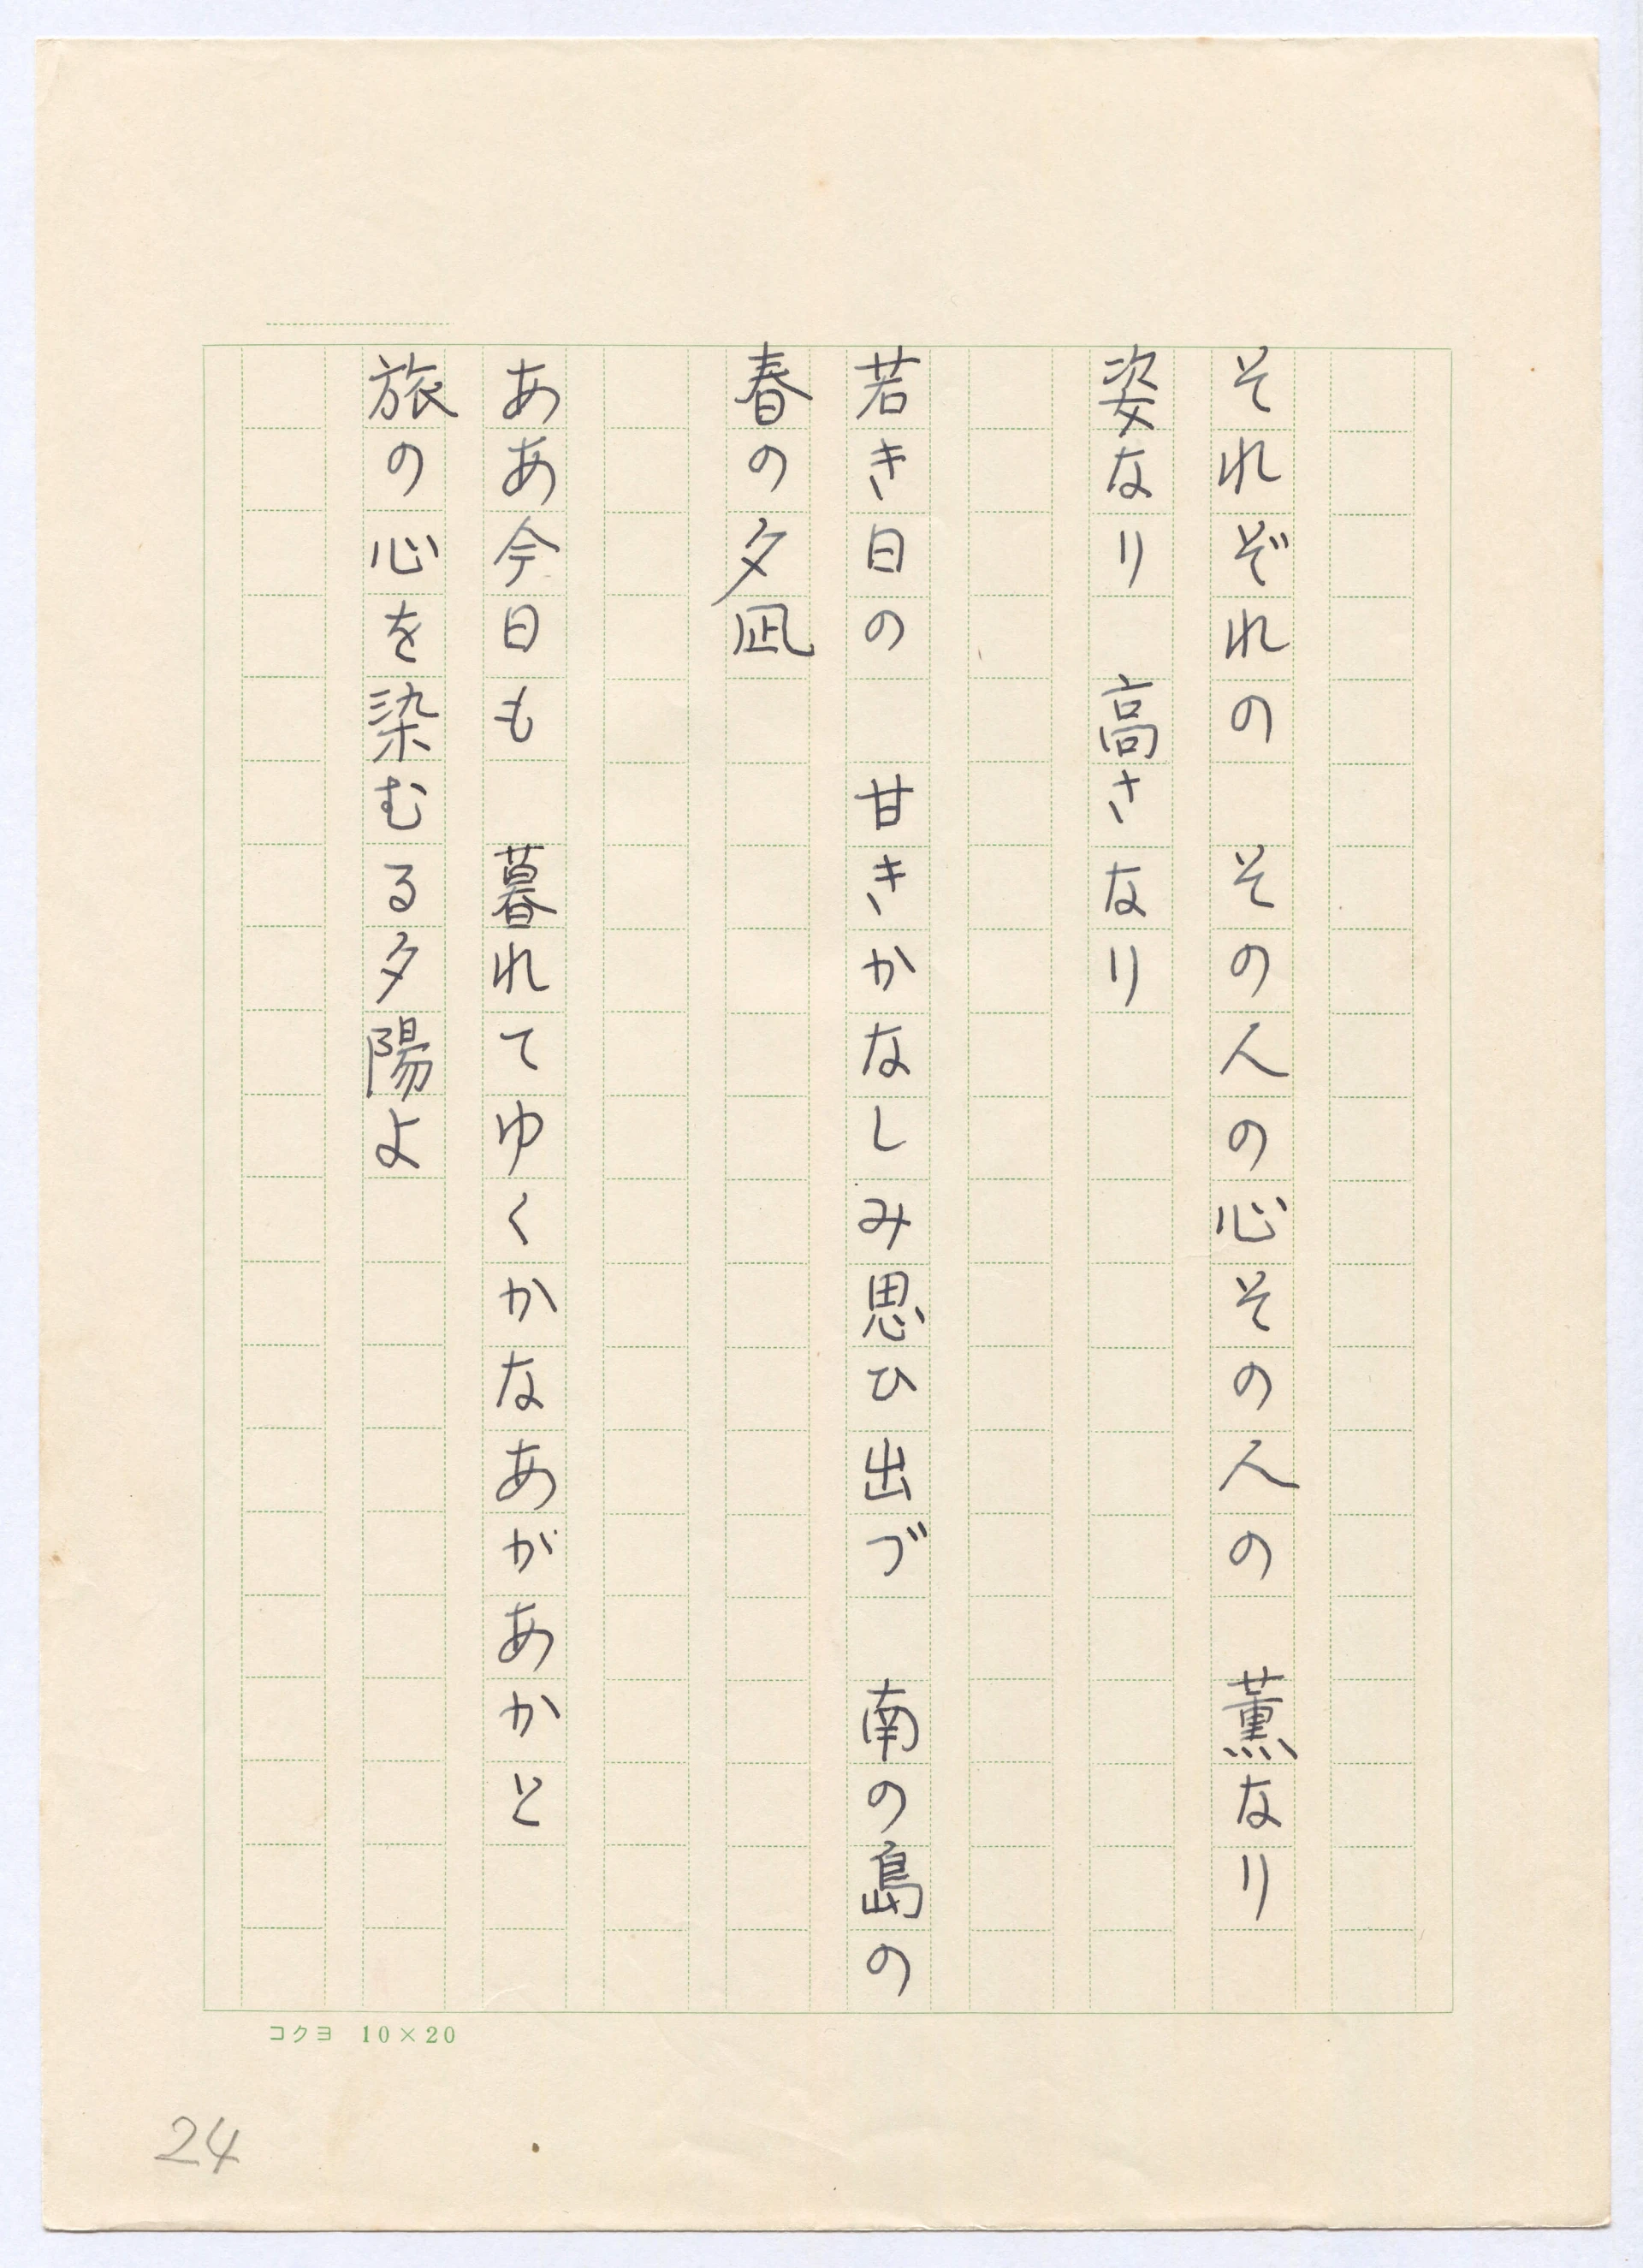 それぞれの　その人の心その人の　薫なり
姿なり　高さなり
若き日の　甘きかなしみ思ひ出づ　南の島の
春の夕凪
ああ今日も　暮れてゆくかなあがあかと
旅の心を染むる夕陽よ
コクヨ 10×20
24